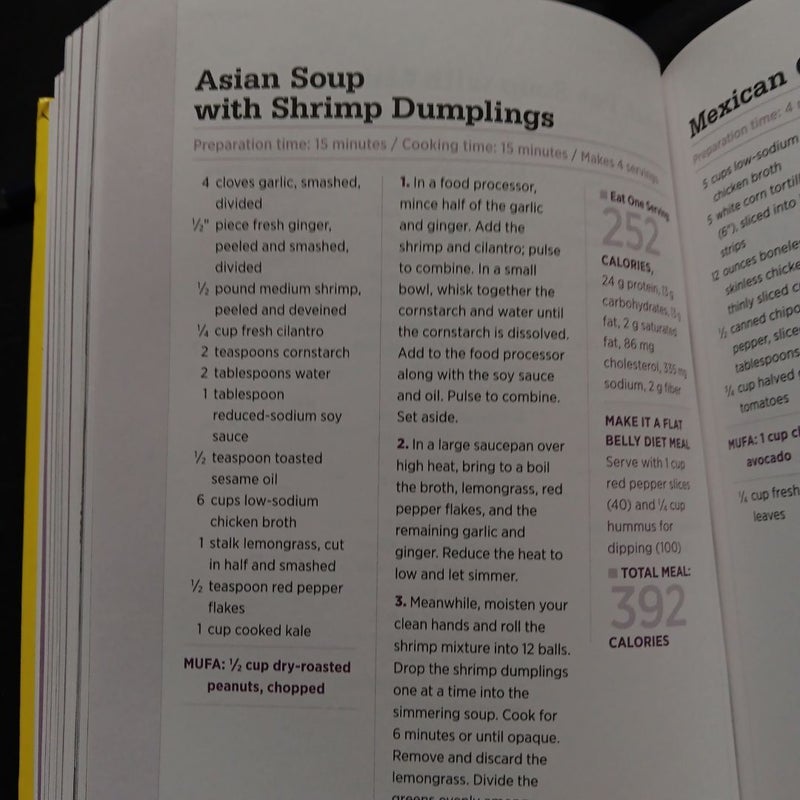 Asian Soup
with Shrimp Dumplings
Preparation time: 15 minutes / Cooking time: 15 minutes / Makes 4 servings
4 cloves garlic, smashed,
divided
½" piece fresh ginger,
peeled and smashed,
divided
½ pound medium shrimp,
peeled and deveined
¼ cup fresh cilantro
2 teaspoons cornstarch
2 tablespoons water
1 tablespoon
reduced-sodium soy
sauce
½ teaspoon toasted
sesame oil
6 cups low-sodium
chicken broth
1 stalk lemongrass, cut
in half and smashed
½ teaspoon red pepper
flakes
1 cup cooked kale
MUFA: ½ cup dry-roasted
peanuts, chopped
1. In a food processor,
mince half of the garlic
and ginger. Add the
shrimp and cilantro; pulse
to combine. In a small
bowl, whisk together the
cornstarch and water until
the cornstarch is dissolved.
Add to the food processor
along with the soy sauce
and oil. Pulse to combine.
Set aside.
2. In a large saucepan over
high heat, bring to a boil
the broth, lemongrass, red
pepper flakes, and the
remaining garlic and
ginger. Reduce the heat to
low and let simmer.
3. Meanwhile, moisten your
clean hands and roll the
shrimp mixture into 12 balls.
Drop the shrimp dumplings
one at a time into the
simmering soup. Cook for
6 minutes or until opaque.
Remove and discard the
lemongrass. Divide the
greens evenly
Eat One Serving
252
CALORIES,
24 g protein, 13 g
carbohydrates, 13 g
fat, 2 g saturated
fat, 86 mg
cholesterol, 335 mg
sodium, 2 g fiber
MAKE IT A FLAT
BELLY DIET MEAL
Serve with 1 cup
red pepper slices
(40) and ¼ cup
hummus for
dipping (100)
TOTAL MEAL:
392
CALORIES
Mexican
Preparation time: 4
5 cups low-sodium
chicken broth
5 white corn
(6"), sliced into
strips
12 ounces
skinless
thinly sliced
½ canned
pepper,
tablespoons
¼ cup halved
tomatoes
MUFA: 1 cup
avocado
¼ cup fresh
leaves